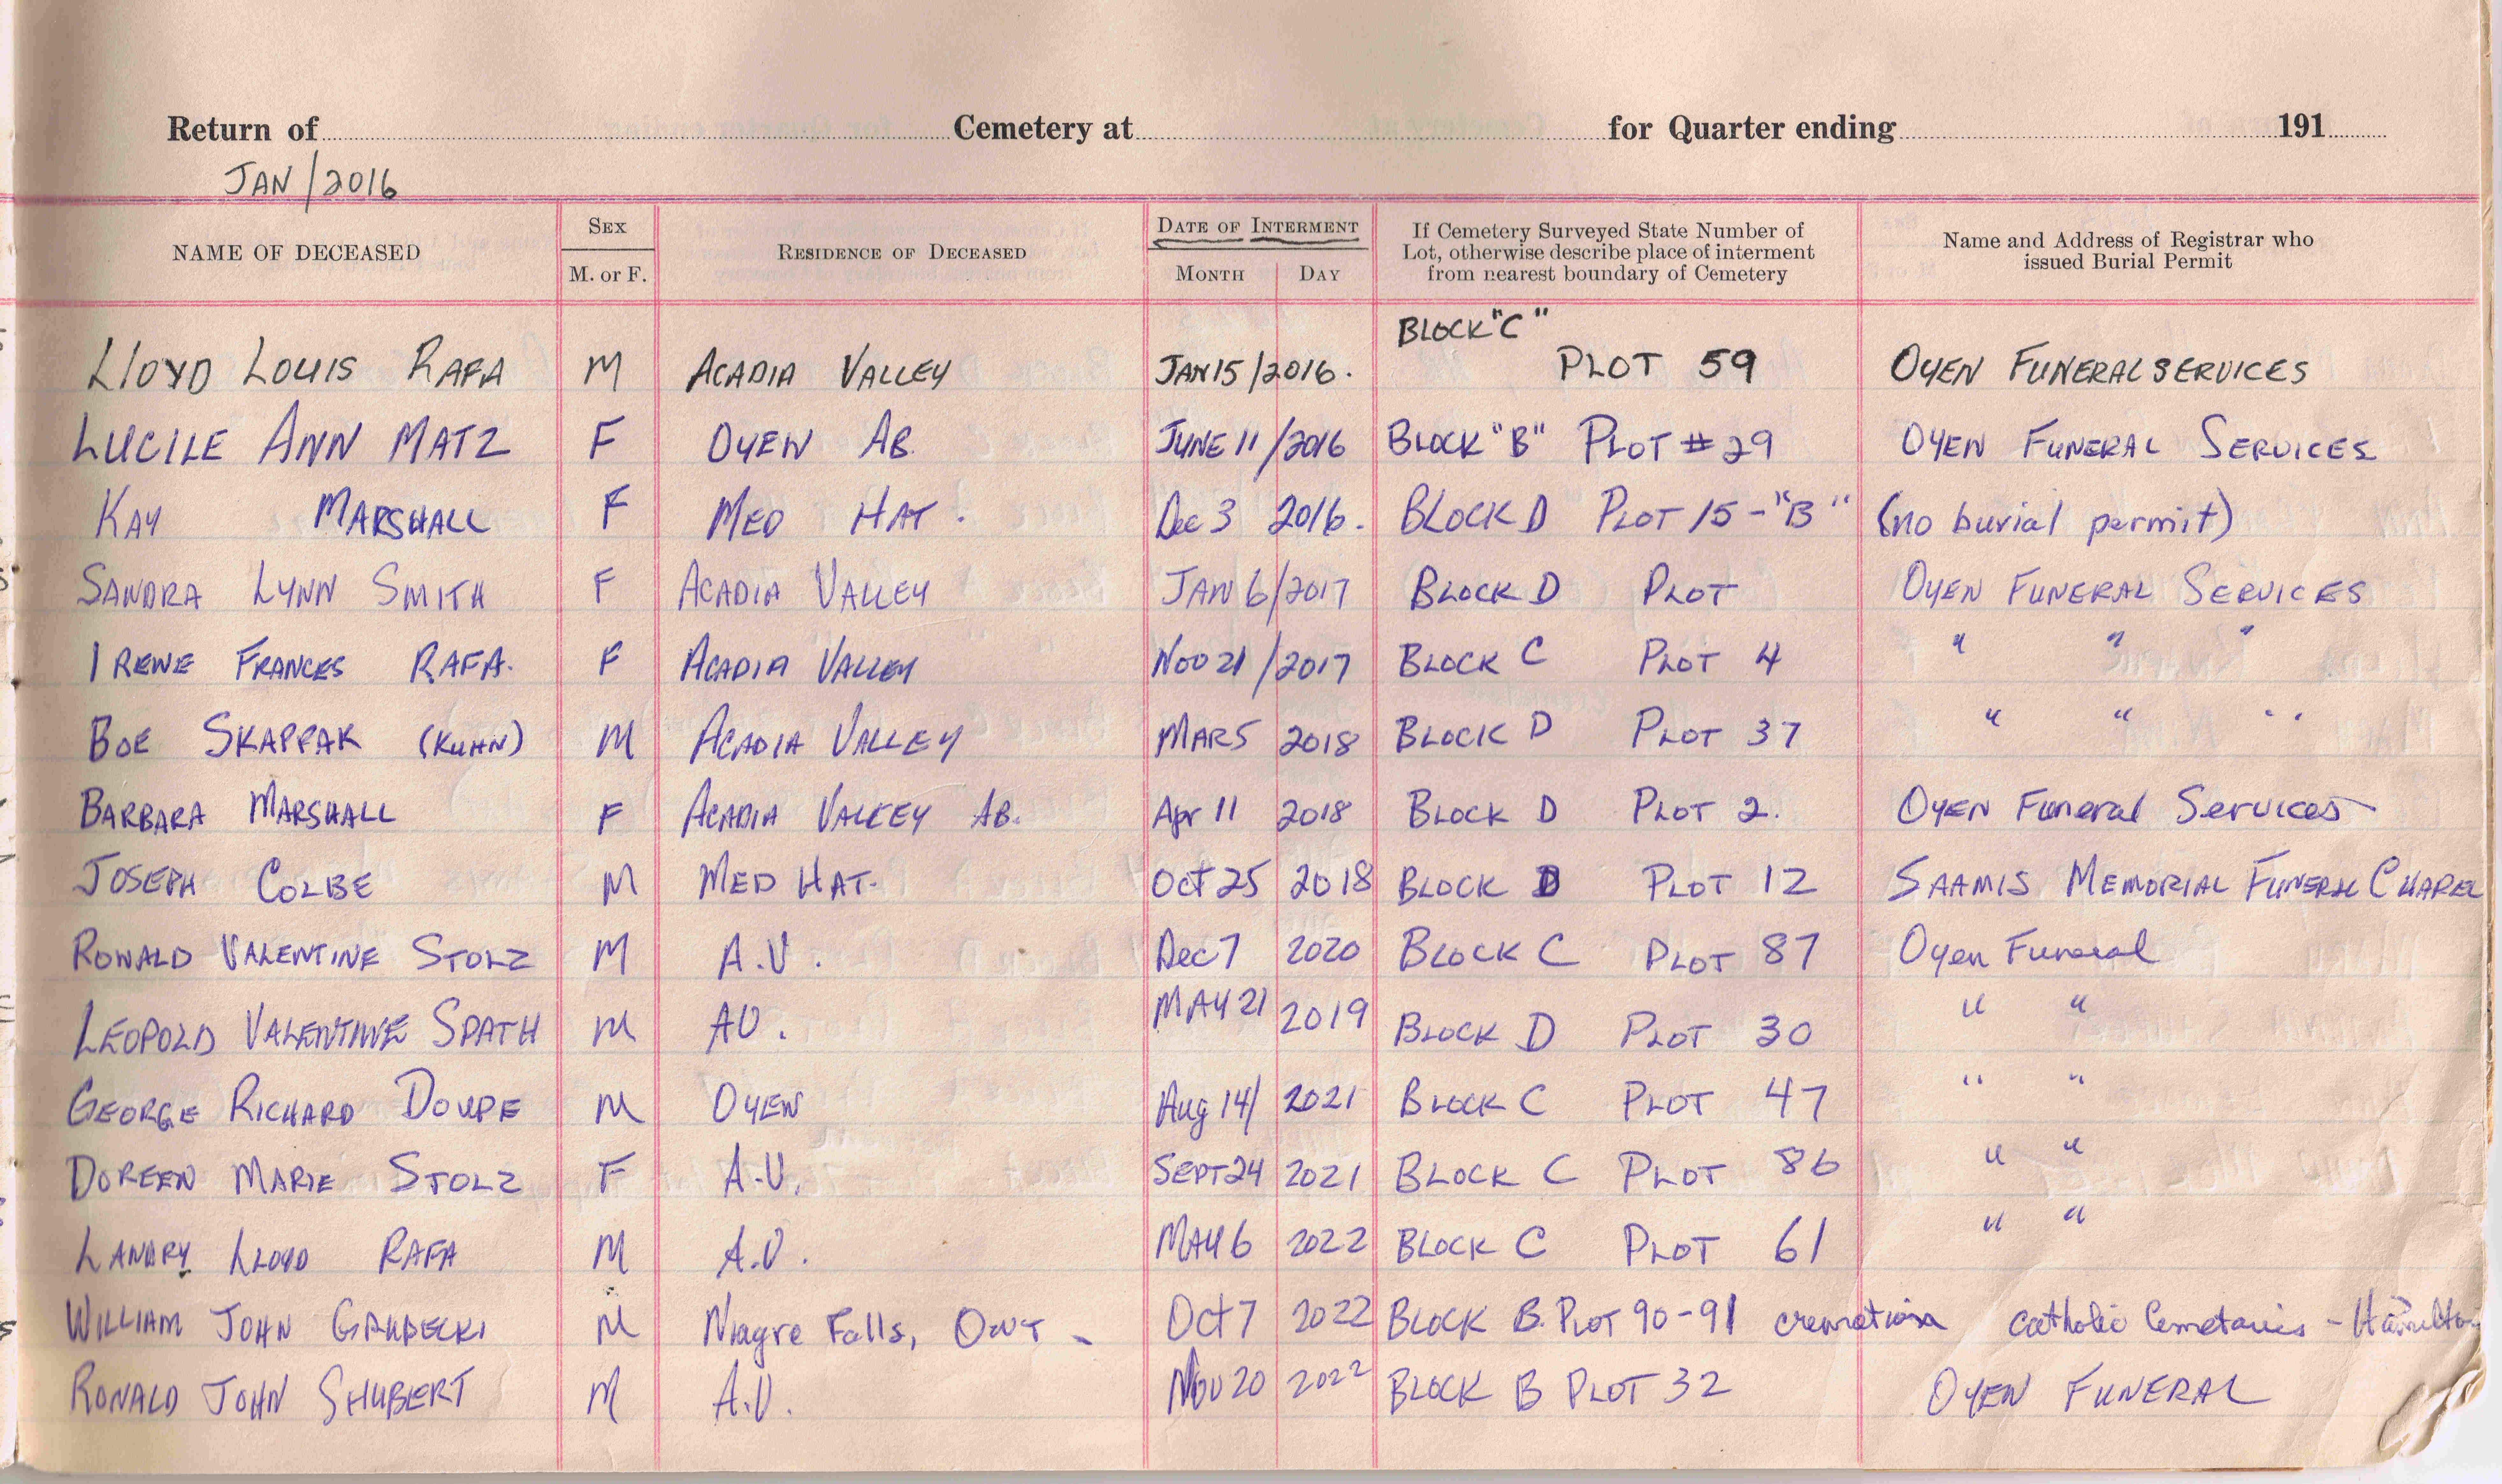 Return of Cemetery at for Quarter ending 191
JAN/2016
NAME OF DECEASED SEX M. or F. RESIDENCE OF DECEASED DATE OF INTERMENT MONTH DAY If Cemetery Surveyed State Number of Lot, otherwise describe place of interment from nearest boundary of Cemetery Name and Address of Registrar who issued Burial Permit
LLOYD LOUIS RAFA M ACADIA VALLEY JAN 15/2016. BLOCK "C" PLOT 59 OYEN FUNERAL SERVICES
LUCILE ANN MATZ F OYEN AB. JUNE 11/2016 BLOCK "B" PLOT #29 OYEN FUNERAL SERVICES
KAY MARSHALL F MED HAT. Dec 3 2016. BLOCK D PLOT 15-"B" (no burial permit)
SANDRA LYNN SMITH F ACADIA VALLEY JAN 6/2017 BLOCK D PLOT OYEN FUNERAL SERVICES
IRENE FRANCES RAFA. F ACADIA VALLEY NOV 21/2017 BLOCK C PLOT 4 " " "
BOE SKAPPAK (KUHN) M ACADIA VALLEY MAR 5 2018 BLOCK D PLOT 37 " " "
BARBARA MARSHALL F ACADIA VALLEY AB. Apr 11 2018 BLOCK D PLOT 2. OYEN Funeral Services
JOSEPH COLBE M MED HAT. Oct 25 2018 BLOCK D PLOT 12 SAAMIS MEMORIAL FUNERAL CHAPEL
RONALD VALENTINE STOLZ M A.V. Dec 7 2020 BLOCK C PLOT 87 Oyen Funeral
LEOPOLD VALENTINE SPATH M AV. MAY 21 2019 BLOCK D PLOT 30 " "
GEORGE RICHARD DOUPE M OYEN Aug 14/ 2021 BLOCK C PLOT 47 " "
DOREEN MARIE STOLZ F A.V. SEPT 24 2021 BLOCK C PLOT 86 " "
LANDRY LLOYD RAFA M A.V. MAY 6 2022 BLOCK C PLOT 61 " "
WILLIAM JOHN M Niagre Falls, ONT - Oct 7 2022 BLOCK B. PLOT 90-91 cremation Catholic Cemetaries - Hamilton
RONALD JOHN SHUBERT M A.V. NOV 20 2022 BLOCK B PLOT 32 OYEN FUNERAL